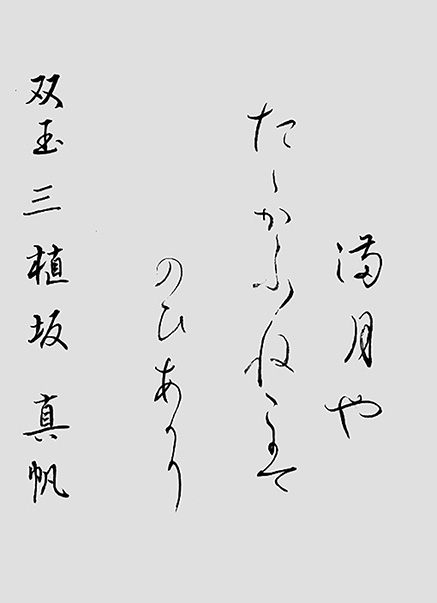 満月や
たゝかふねこは
のひあかり
双玉三 植坂 真帆